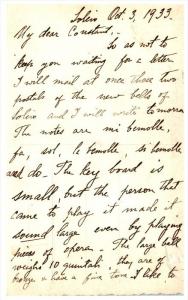 Soleio Oct. 3, 1933.
My dear Constant..
So as not to
keep you waiting for a letter
I will mail at once these two
postals of the new bells of
Soleio and I will write tomorrow
The notes are mi bemolle,
fa, sol, la bemolle, si bemolle
and do. The key board is
small, but the person that
came to play it made it
sound large even by playing
pieces of opera. The large bell
weighs 10 quintali, they are of
and have a fine tone. I like to